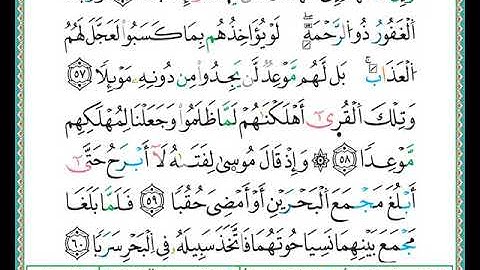 اَ۬لْغَفُورُ ذُو اُ۬لرَّحْمَةِ لَوْ يُؤَاخِذُهُم بِمَا كَسَبُواْ لَعَجَّلَ لَهُمُ
اُ۬لْعَذَابَ بَل لَّهُم مَّوْعِدٌ لَّن يَجِدُواْ مِن دُونِهِۦ مَوْئِلًا ٥٧
وَتِلْكَ اَ۬لْقُرَىٰٓ أَهْلَكْنَٰهُمْ لَمَّا ظَلَمُواْ وَجَعَلْنَا لِمُهْلَكِهِم
مَّوْعِدًا ٥٨ ۞ وَإِذْ قَالَ مُوسَىٰ لِفَتَىٰهُ لَآ أَبْرَحُ حَتَّىٰٓ
أَبْلُغَ مَجْمَعَ اَ۬لْبَحْرَيْنِ أَوْ أَمْضِيَ حُقُبًا ٥٩ فَلَمَّا بَلَغَا
مَجْمَعَ بَيْنِهِمَا نَسِيَا حُوتَهُمَا فَاتَّخَذَ سَبِيلَهُۥ فِي اِ۬لْبَحْرِ سَرَبًا ٦٠